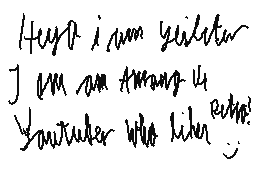 Heyo i am
I am an Among Us
Youtuber Who likes
:)